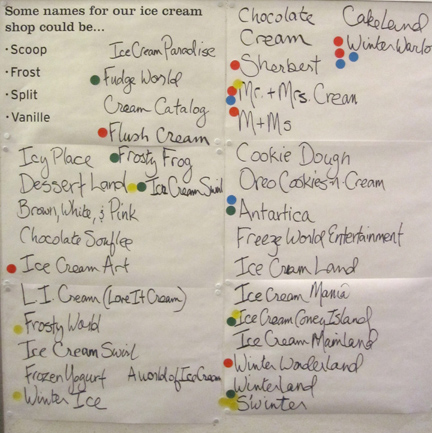 Some names for our ice cream
shop could be...
· Scoop
· Frost
· Split
· Vanille
Ice Cream Paradise
Fudge World
Cream Catalog
Flush Cream
Icy Place
Frosty Frog
Dessert Land
Ice Cream Swirl
Brown, White, & Pink
Chocolate Souflee
Ice Cream Art
L.I. Cream (Love It Cream)
Frosty World
Ice Cream Swirl
Frozen Yogurt
A world of Ice Cream
Winter Ice
Chocolate
Cream
Cakeland
Winter
Sherbert
Mr. + Mrs. Cream
M+Ms
Cookie Dough
Oreo Cookies-n-Cream
Antartica
Freeze World Entertainment
Ice Cream Land
Ice Cream Mania
Ice Cream Coney Island
Ice Cream Mainland
Winter Wonderland
Winterland
Swinter